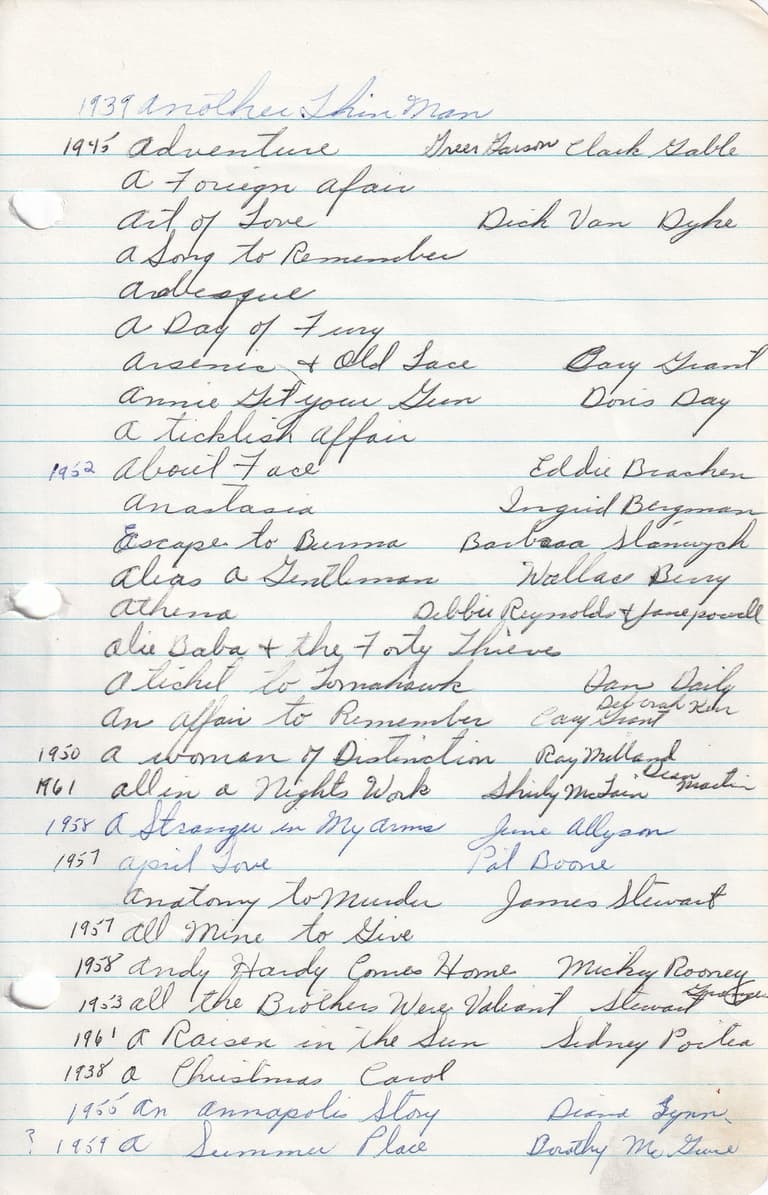 1939 Another Thin Man
1945 Adventure Greer Garson Clark Gable
A Foreign Afair
Art of Love Dick Van Dyke
A Song to Remember
Arabesque
A Day of Fury
Arsenic & Old Lace Cary Grant
Annie Get your Gun Doris Day
A ticklish affair
1952 About Face Eddie Bracken
Anastasia Ingrid Bergman
Escape to Burma Barbara Stanwyck
Alias a Gentleman Wallace Berry
Athena Debbie Reynolds & Jane powell
Alie Baba & the Forty Thieves
A ticket to Tomahawk Dan Daily
An Affair to Remember Cary Grant Deborah Kerr
1950 A woman of Distinction Ray Milland
1961 all in a Nights Work Shirly McLain Dean Martin
1958 A Stranger in My Arms June Allyson
1957 April Love Pat Boone
Anatomy to Murder James Stewart
1957 All Mine to Give
1958 Andy Hardy Comes Home Mickey Rooney
1953 all the Brothers Were Valiant Stewart Granger
1961 A Raisen in the Sun Sidney Poitea
1938 A Christmas Carol
1955 An Annapolis Story Diana Lynn
? 1959 A Summer Place Dorothy McGuire